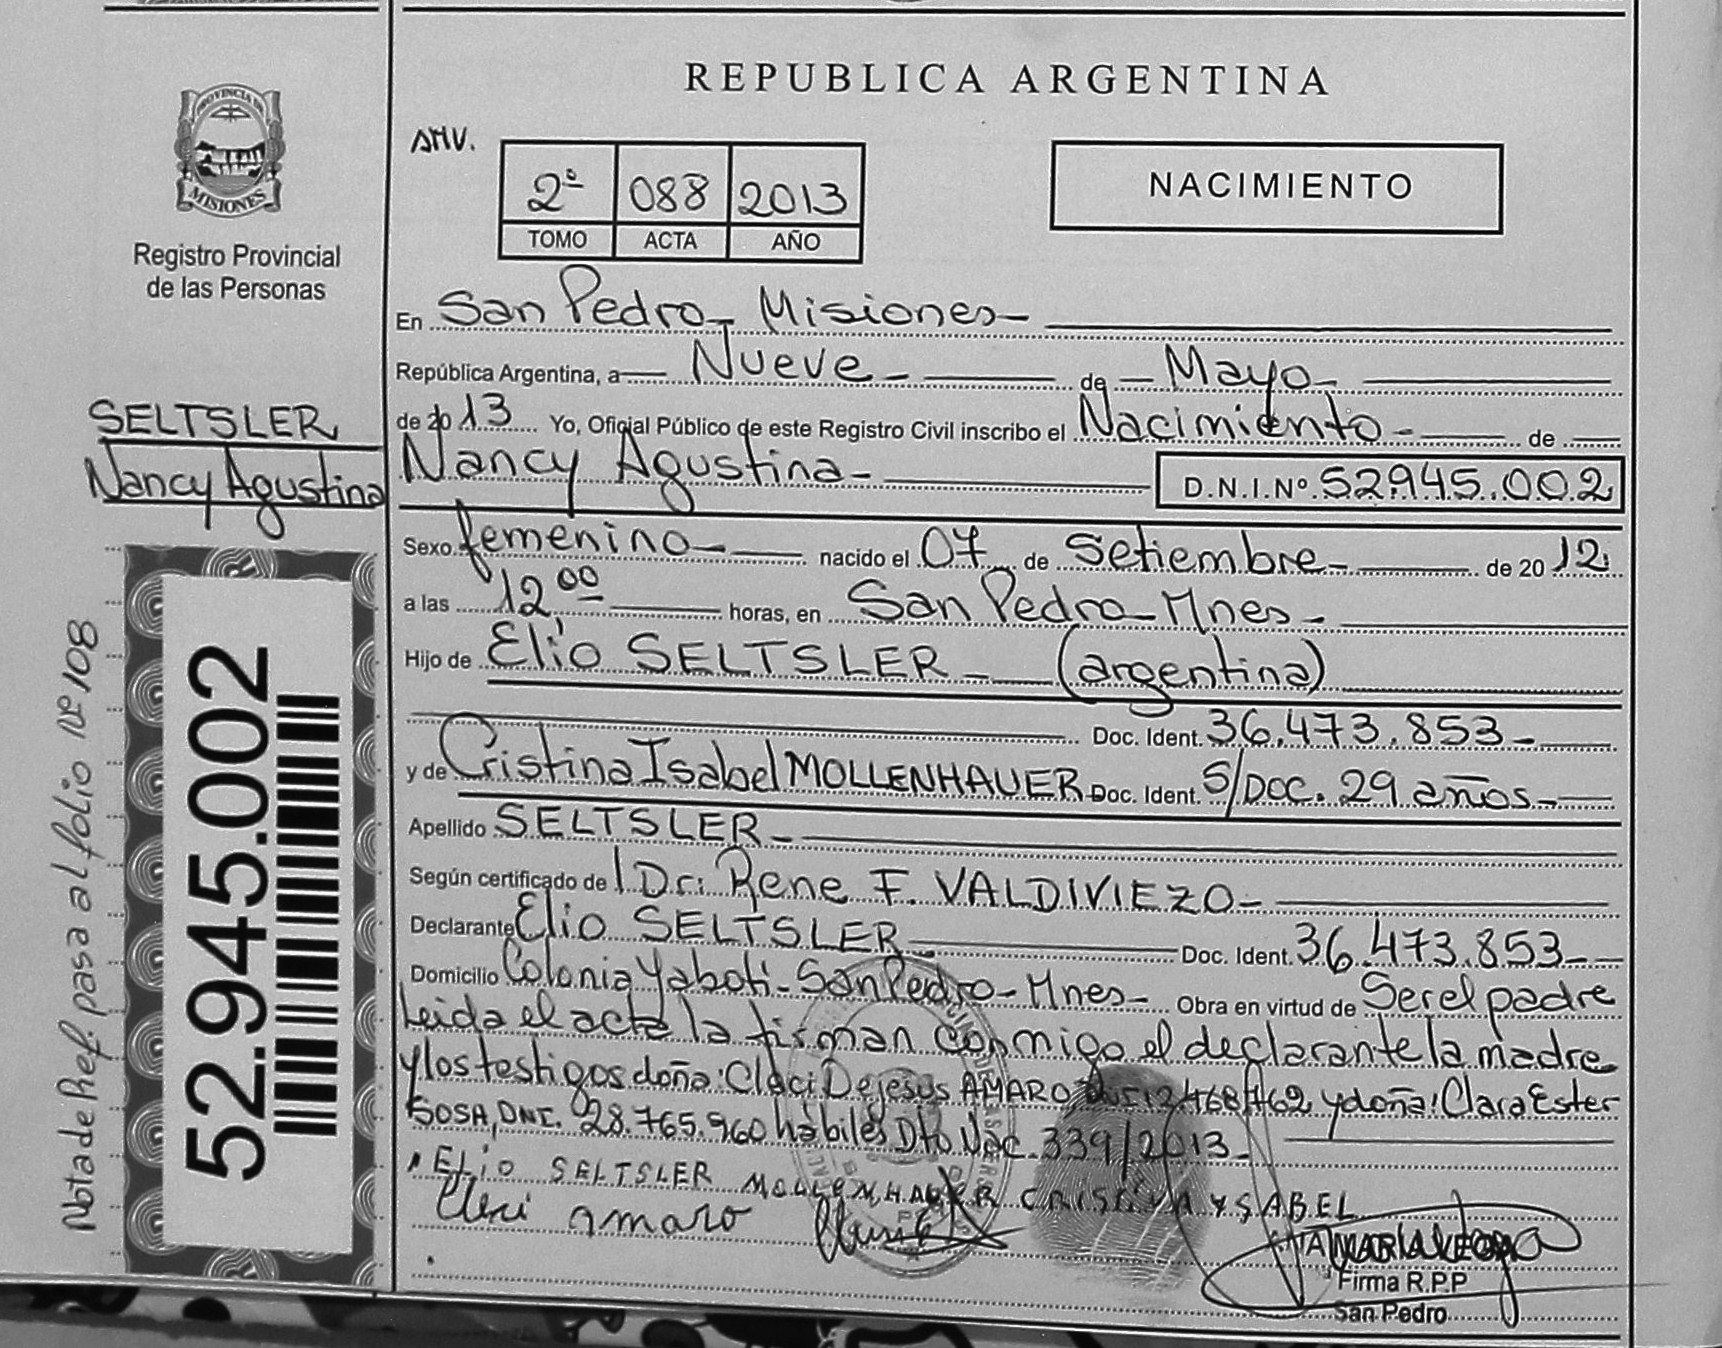 REPUBLICA ARGENTINA
PROVINCIA DE
MISIONES
Registro Provincial
de las Personas
AMV.
2º 088 2013
TOMO ACTA AÑO
NACIMIENTO
SELTSLER
Nancy Agustina
52.945.002
Nota de Ref. pasa al folio Nº 108
En San Pedro - Misiones -
República Argentina, a - Nueve - de - Mayo -
de 2013 Yo, Oficial Público de este Registro Civil inscribo el Nacimiento - de
Nancy Agustina - D.N.I.Nº 52.945.002
Sexo femenino - nacido el 07 de Setiembre - de 2012
a las 12 00 horas, en San Pedro - Mnes -
Hijo de Elio SELTSLER - (argentina)
Doc. Ident. 36.473.853 -
y de Cristina Isabel MOLLENHAUER Doc. Ident. S/Doc. 29 años -
Apellido SELTSLER -
Según certificado de l Dr: Rene F. VALDIVIEZO -
Declarante Elio SELTSLER Doc. Ident. 36.473.853 -
Domicilio Colonia Yaboti - San Pedro - Mnes - Obra en virtud de Ser el padre
Leida el acta la firman conmigo el declarante la madre
y los testigos doña: Cleci Dejesus AMARO, y doña: Clara Ester
SOSA, DNI. 28.765.960 hábiles Dto Nac. 339/2013 -
ELIO SELTSLER MOLLENHAUER CRISTINA YSABEL
Cleci amaro
Firma R.P.P
San Pedro